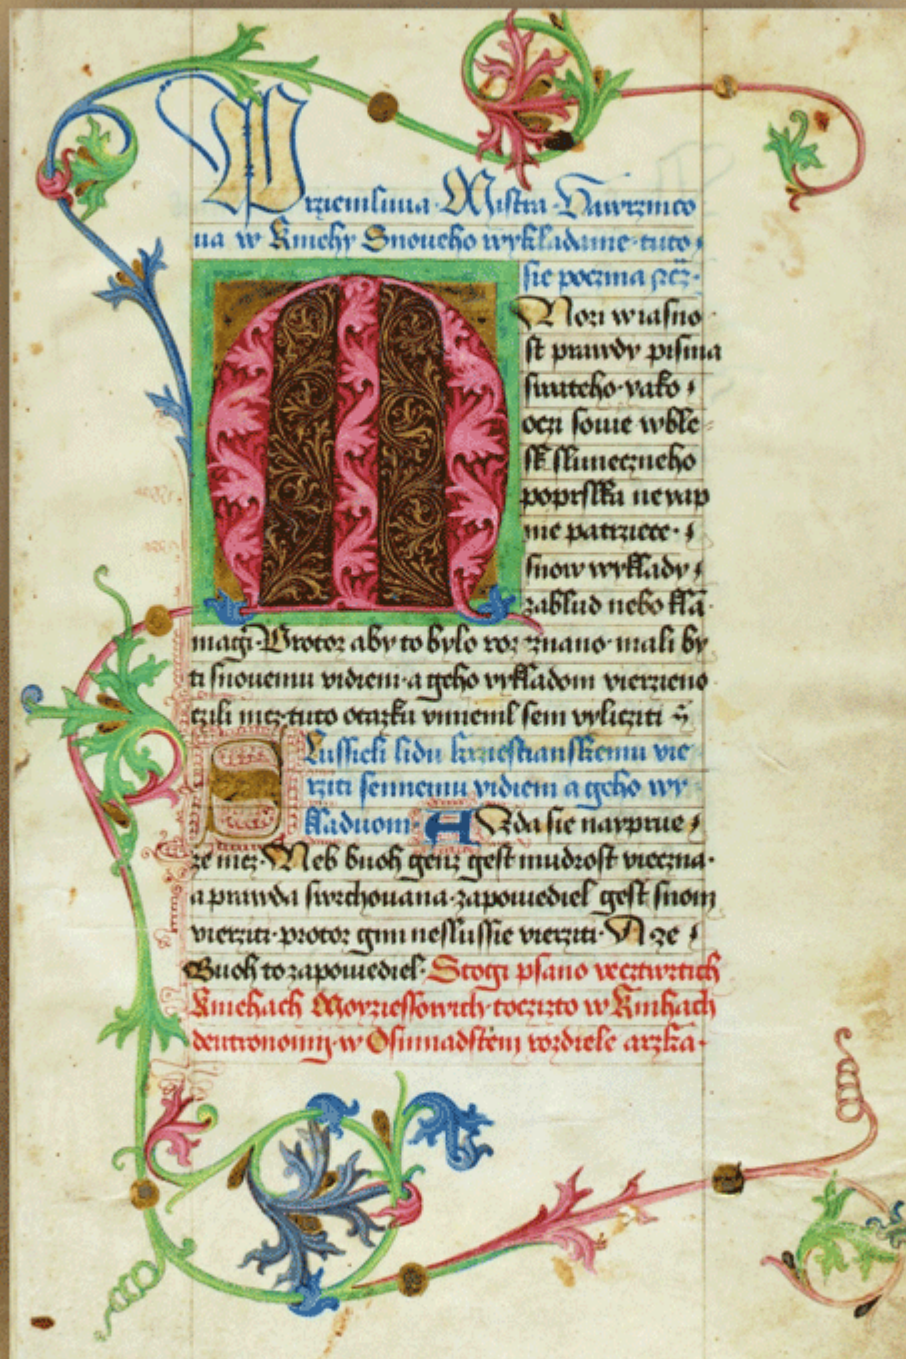 Prziemluua Mistra Vawrzincze
na w Kniehy Snoueho wykladanie tuto
sie poczina
Mori w iasno
st prawdy pisma
swateho yako
oczi sowie w ble
sk sluneczneho
poprsslku
nie patrziece
snow wyklady
zablud nebo klā
magi Protoz aby to bylo poznano mali by
ti snouemu vidieni a geho vykladom vierzieno
czili nicz tuto otazku vmienil sem vylicziti
Slussieli lidu krziestianskemu vie
rziti sennemu vidieni a geho wy
kladuom A Zda sie nayprue
ze nicz Neb buoh genz gest mudrost vieczna
a prawda swrchouana zapowiediel gest snom
vierziti protoz gim neslussie vierziti A ze
Buoh to zapowiediel Stogi psano w cztwrtich
Kniehach Moyziessowich toczizto w Knihach
deutronomij w Osmnadstem rozdiele arzka